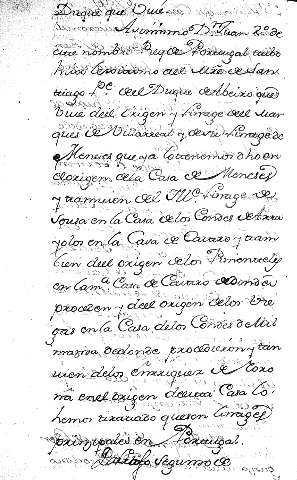 Duque que Vive.
Asimismo Dn. Juan 2º de
este nombre Rey de Portugal
hizo
tiago Pe. del Duque de Abeiro que
Vive del Origen y Linage del Mar
ques de Villarreal y de su Linage de
Meneses que ya lo tenemos dho en
el origen de la Casa de Meneses
y tambien del Linage de
Sousa en la Casa de los Condes de Arra
yolos en la Casa de Castro y tam
bien del origen de los Pimenteles
en la mª Casa de Castro de donde
proceden y del origen de los Vie
gas en la Casa de los Condes de
de donde procedieron y tan
bien de los enrriquez de Noro
ña en el origen de esta Casa lo
hemos tratado que son Linages
principales en Portugal.
Parrafo Segundo de